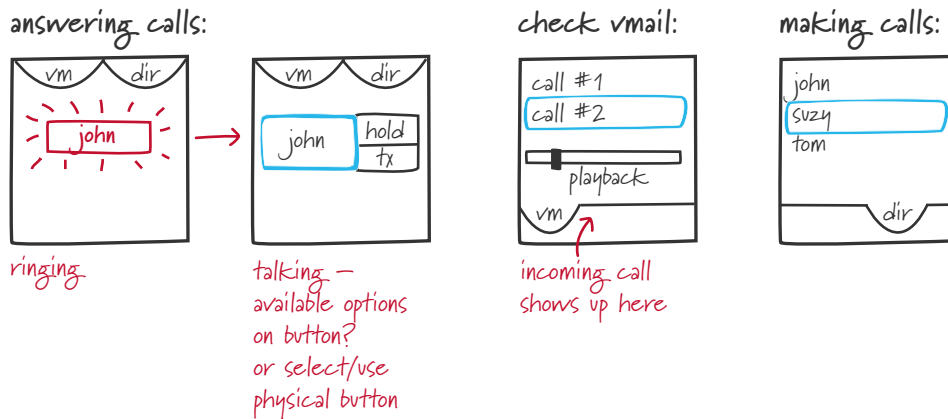 answering calls:
vm dir
john
ringing
vm dir
john
hold
tx
talking –
available options
on button?
or select/use
physical button
check vmail:
call #1
call #2
playback
vm
incoming call
shows up here
making calls:
john
suzy
tom
dir